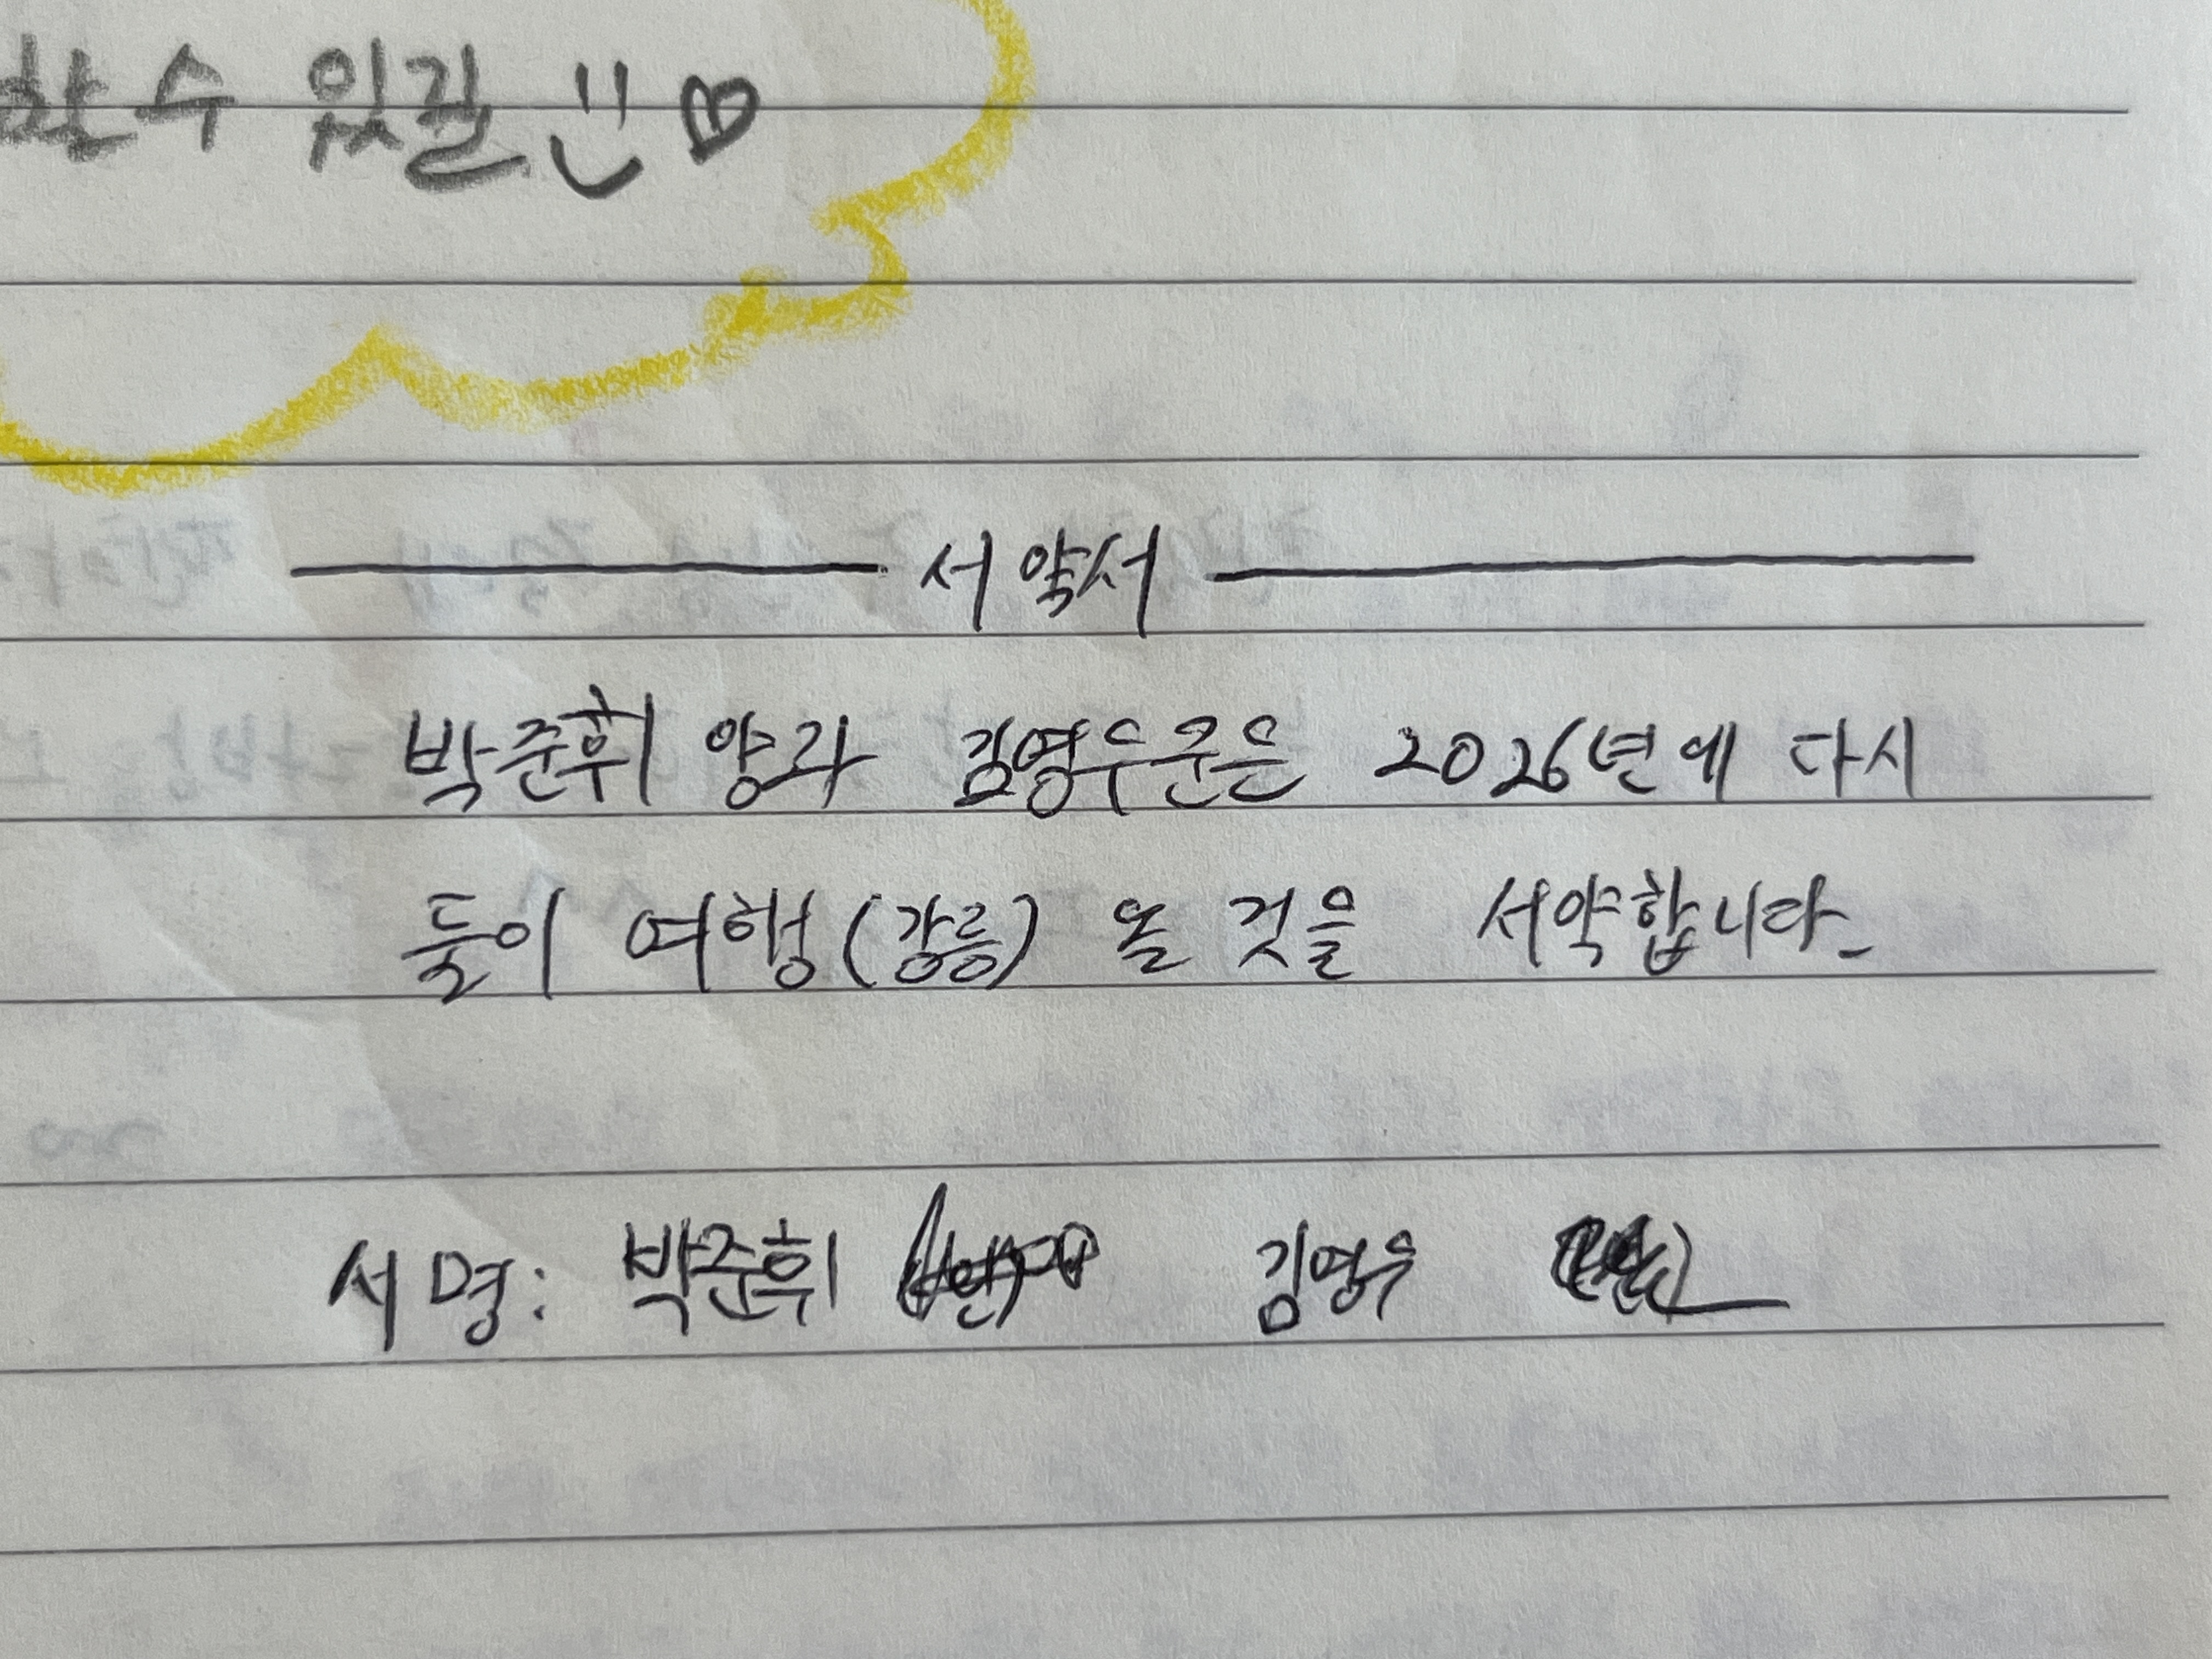 할 수 있길 ♡
서약서
박준휘 양과 김영우군은 2026년에 다시
둘이 여행(강릉) 올 것을 서약합니다.
서명: 박준휘 김영우